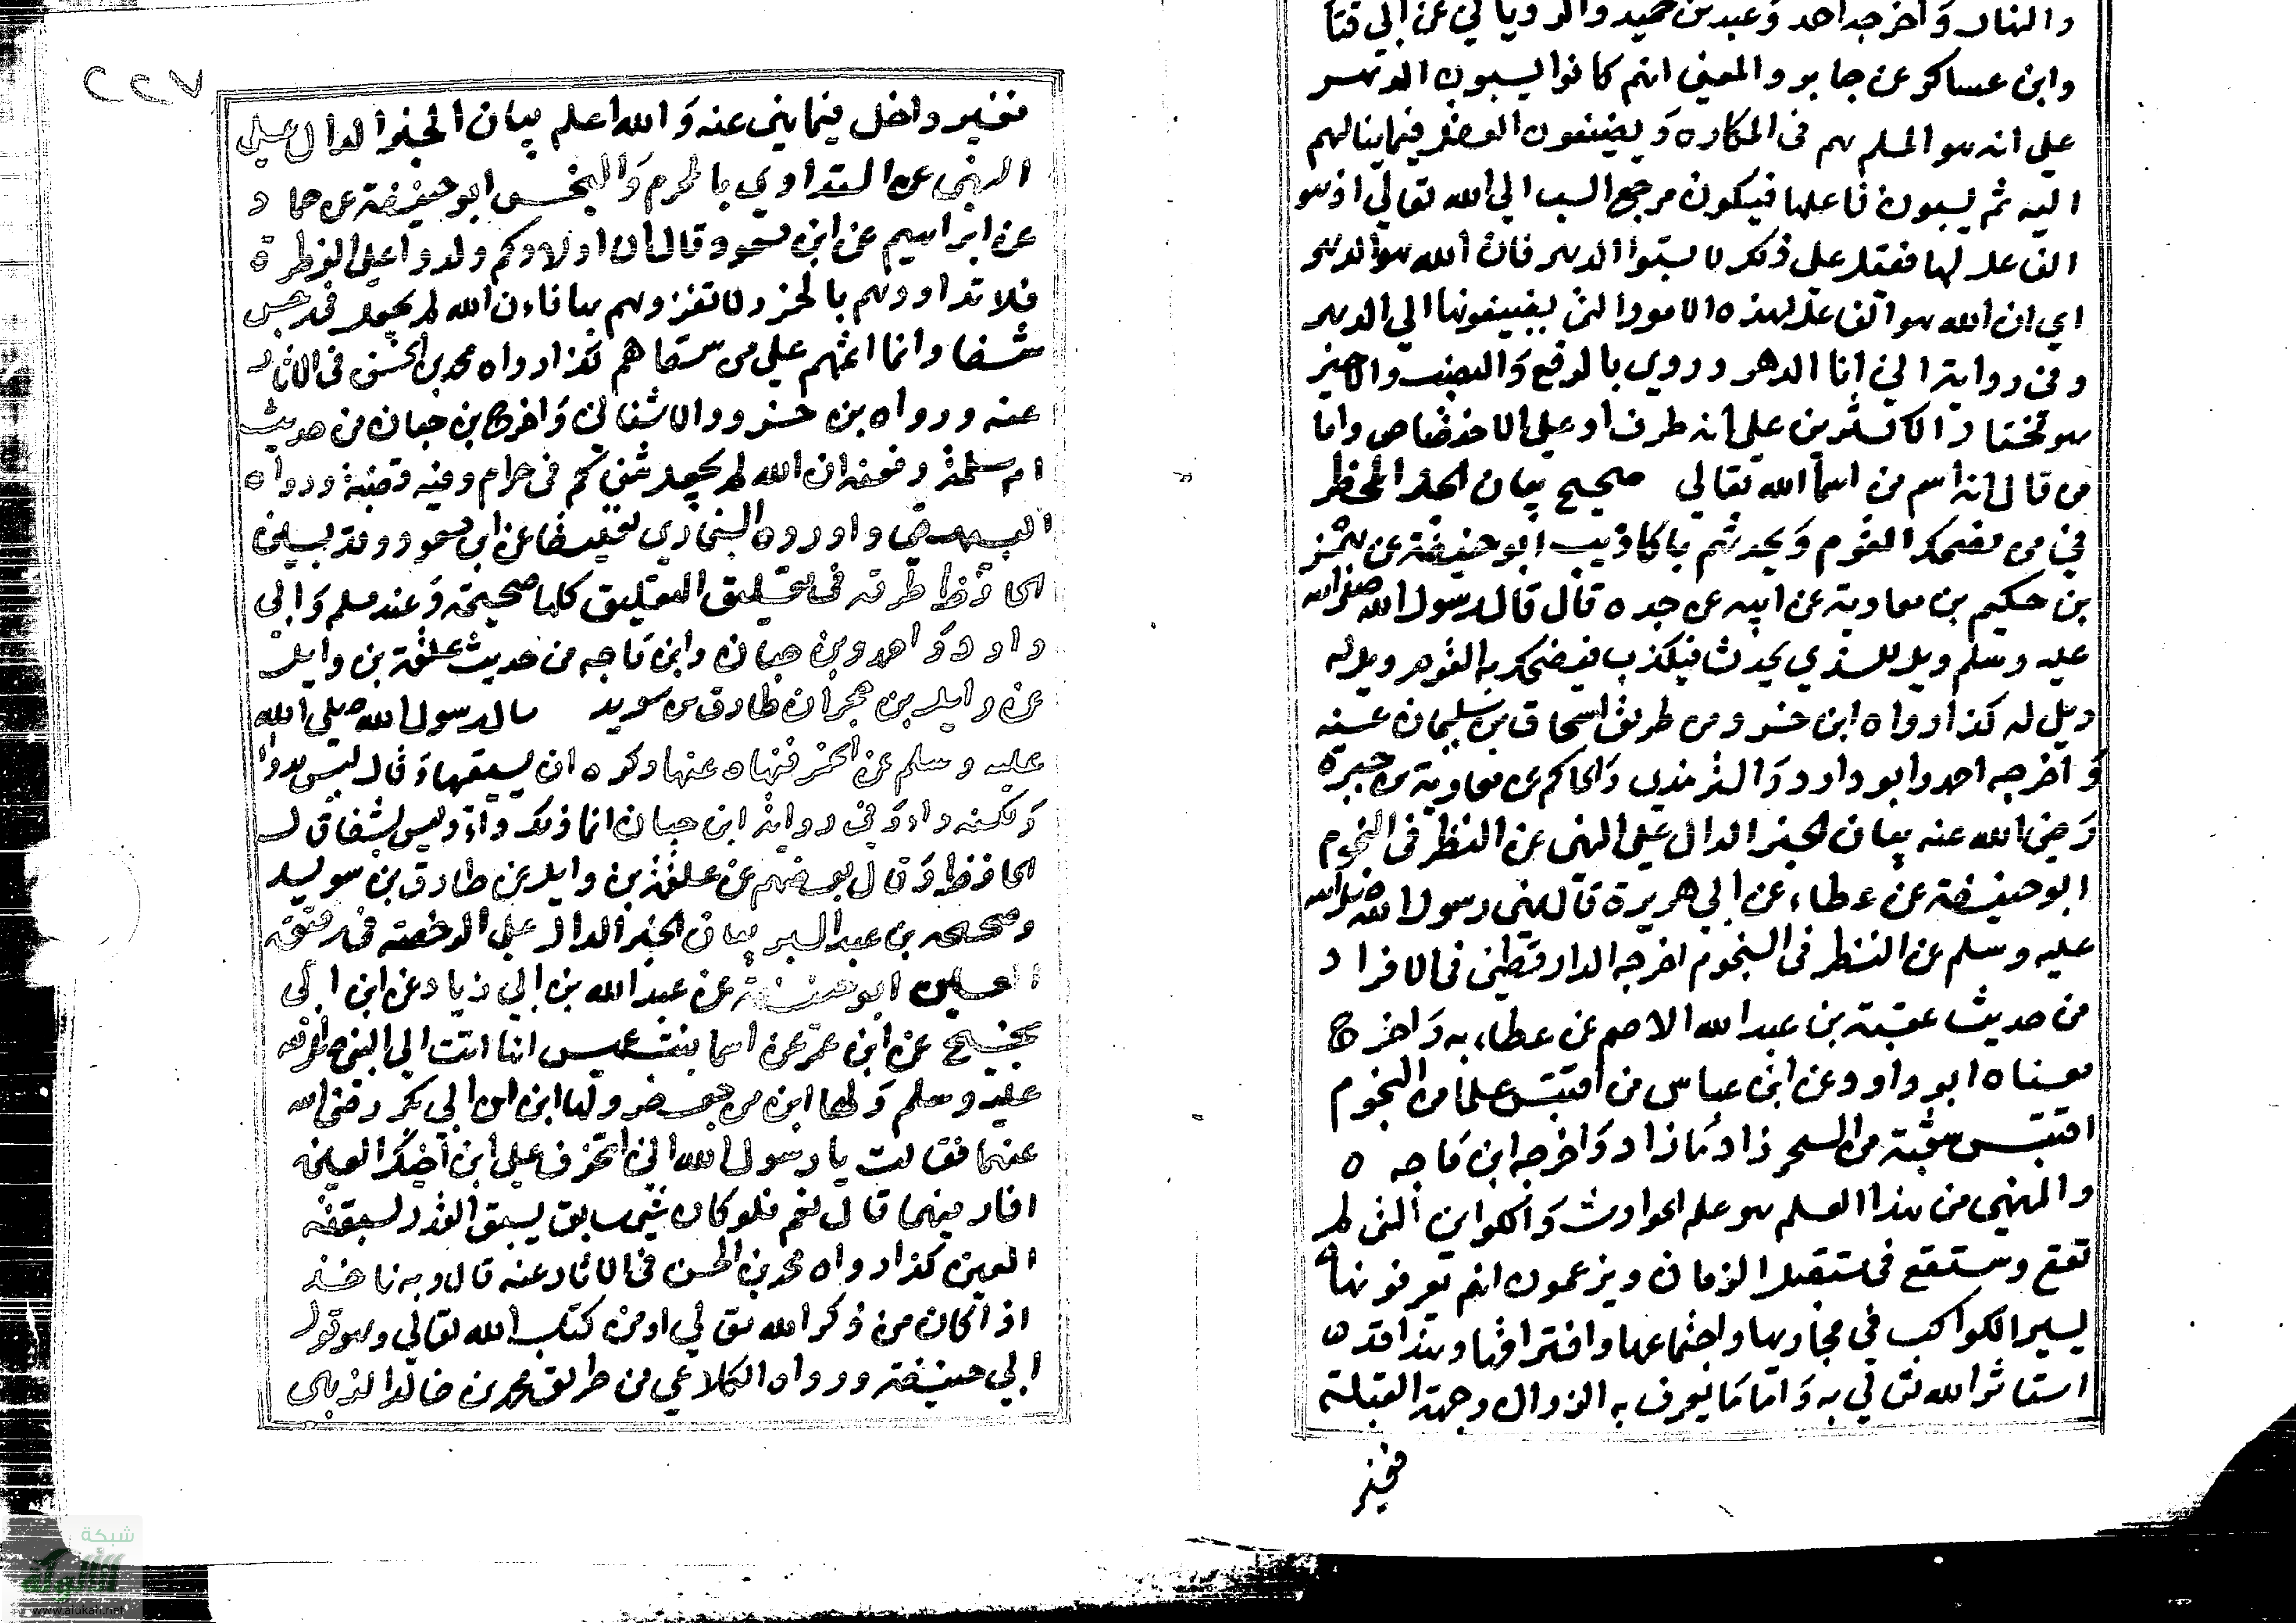 والنهار واخرجه احمد وعبد بن حميد والرويا ني عن ابي قتا
وابن عساكر عن جابر والمعنى انهم كانوا يسبون الدهر
على انه هو الملم بهم في المكاره ويضيفون الفعل فيما ينالهم
اليه ثم يسبون فاعلها فيكون مرجع السب الى الله تعالى اذ هو
الفاعل لها فقيل على ذلك لا تسبوا الدهر فان الله هو الدهر
اي ان الله هو الفاعل لهذه الامور التي يضيفونها الى الدهر
وفي رواية اني انا الدهر وروي بالرفع والنصب والاخير
هو مختار الاكثرين على انه ظرف او على الاختصاص واما
من قال انه اسم من اسما الله تعالى صحيح بيان الخبر الحظر
في من يضحك القوم ويحدثهم باكاذيب ابو حنيفة عن بهز
بن حكيم بن معاوية عن ابيه عن جده قال قال رسول الله صلى الله
عليه وسلم ويل للذي يحدث فيكذب فيضحك به القوم ويل له
ويل له كذا رواه ابن خسرو من طريق اسحاق بن سليمان عنه
واخرجه احمد وابو داود والترمذي والحاكم عن معاوية بن حيدة
رضي الله عنه بيان الخبر الدال على النهي عن النظر في النجوم
ابو حنيفة عن عطاء عن ابي هريرة قال نهى رسول الله صلى الله
عليه وسلم عن النظر في النجوم اخرجه الدارقطني في الافراد
من حديث عقبة بن عبد الله الاصم عن عطاء به واخرج
معناه ابو داود وعن ابن عباس من اقتبس علما من النجوم
اقتبس شعبة من السحر زاد ما زاد واخرجه ابن ماجه ه
والمنهي من هذا العلم هو علم الحوادث والكواين التي لم
تقع وستقع في مستقبل الزمان ويزعمون انهم يعرفونها
بسير الكواكب في مجاريها واجتماعها وافتراقها وهذا قد
استاثر الله تعالى به واما ما يعرف به الزوال وجهة القبلة
فغير
٢٢٧
فغير داخل فيما نهي عنه والله اعلم بيان الخبر الدال على
النهي عن التداوي بالمحرم والنجس ابو حنيفة عن حماد
عن ابراهيم عن ابن مسعود قال ان اولادكم ولدوا على الفطرة
فلا تداووهم بالخمر ولا تغذوهم بها فان الله لم يجعل في رجس
شفا وانما اثمهم على من سقاهم كذا رواه محمد بن الحسن في الاثار
عنه ورواه بن خسرو والاشناني واخرج بن حبان من حديث
ام سلمة رفعته ان الله لم يجعل شفاكم في حرام وفيه قصة ورواه
البيهقي واورده البخاري تعليقا عن ابن مسعود وقد بين
الحافظ طرقه في تغليق التعليق كلها صحيحة وعند مسلم وابي
داود واحمد وبن حبان وابن ماجه من حديث علقمة بن وايل
عن وايل بن حجر ان طارق بن سويد سال رسول الله صلى الله
عليه وسلم عن الخمر فنهاه عنها وكره ان يصنعها وقال ليس بدوا
ولكنه داء وفي رواية ابن حبان انما ذلك داء وليس بشفا قال
الحافظ وقال بعضهم عن علقمة بن وايل عن طارق بن سويد
وصححه بن عبد البر بيان الخبر الدال على الرخصة في رقية
العين ابو حنيفة عن عبد الله بن ابي زياد عن ابن ابي
نجيح عن ابن عمر عن اسما بنت عميس انها اتت الى النبي صلى الله
عليه وسلم ولها ابن من جعفر ولها ابن من ابي بكر رضي الله
عنهما فقالت يا رسول الله اني اتخوف على ابن اخيك العين
افارقيهما قال نعم فلو كان شي سابق يسبق القدر لسبقته
العين كذا رواه محمد بن الحسن في الاثار عنه قال وبه ناخذ
اذا كان من ذكر الله تعالى او من كتاب الله تعالى وهو قول
ابي حنيفة ورواه الكلاعي من طريق محمد بن خالد الذهبي
شبكة
الألوكة
www.alukah.net